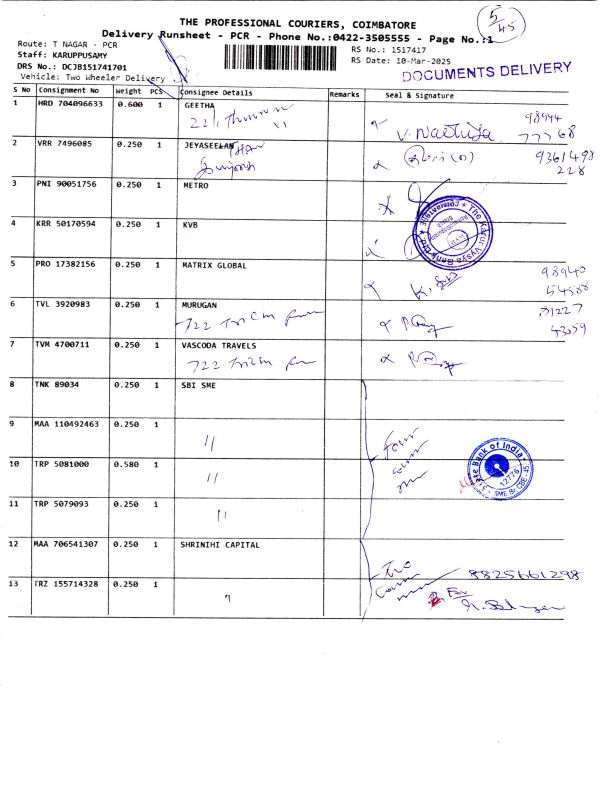 5/45
THE PROFESSIONAL COURIERS, COIMBATORE
Delivery Runsheet - PCR - Phone No.:0422-3505555 - Page No.:1
Route: T NAGAR - PCR
RS No.: 1517417
Staff: KARUPPUSAMY
RS Date: 10-Mar-2025
DRS No.: DCJB151741701
DOCUMENTS DELIVERY
Vehicle: Two Wheeler Delivery
S No Consignment No Weight PCS Consignee Details Remarks Seal & Signature
1 HRD 704096633 0.600 1 GEETHA
98944
77768
2 VRR 7496085 0.250 1 JEYASEELAN
9361498
228
3 PNI 90051756 0.250 1 METRO
4 KRR 50170594 0.250 1 KVB
The Karur Vysya Bank Ltd
5 PRO 17382156 0.250 1 MATRIX GLOBAL
98940
6 TVL 3920983 0.250 1 MURUGAN
722
7 TVM 4700711 0.250 1 VASCODA TRAVELS
722
8 TNK 89034 0.250 1 SBI SME
9 MAA 110492463 0.250 1 "
Four
State Bank of India
12776
SME Br. CBE-45
10 TRP 5081000 0.580 1 "
11 TRP 5079093 0.250 1 "
12 MAA 706541307 0.250 1 SHRINIHI CAPITAL
Two
8825661298
13 TRZ 155714328 0.250 1 "
For